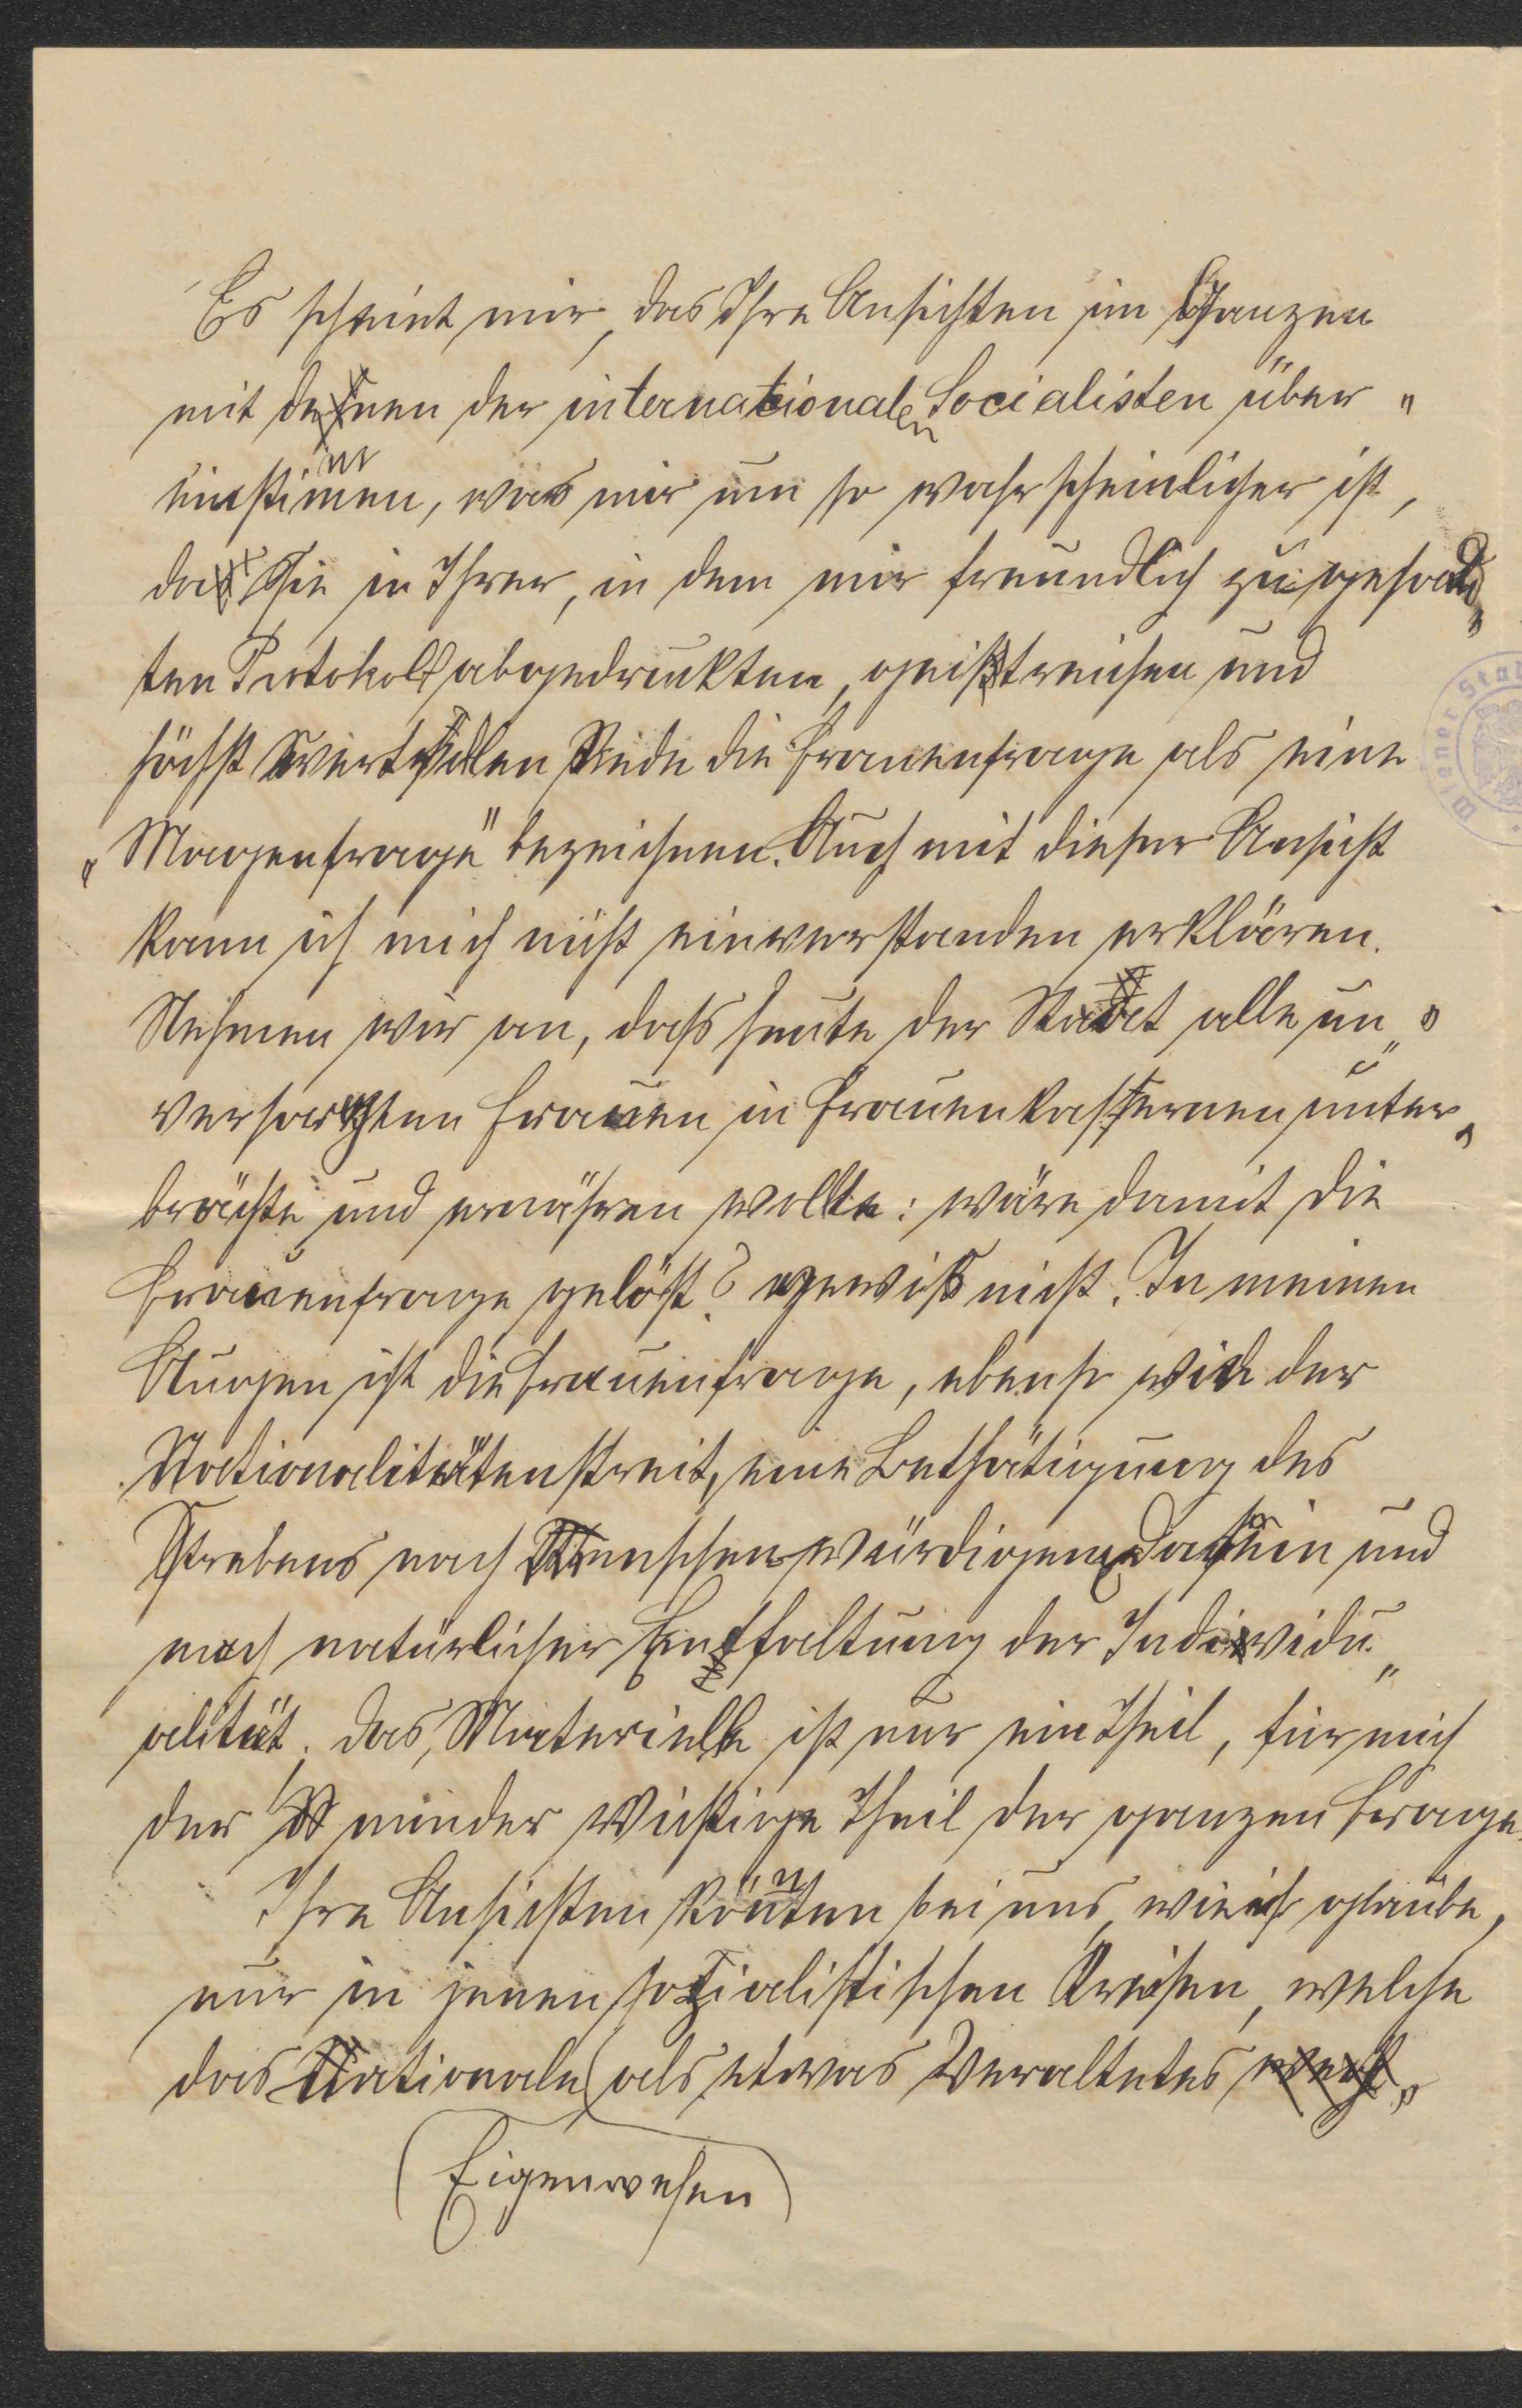 Es scheint mir, das Ihre Ansichten im Ganzen
mit denen der internationalen Socialisten über„
einstimmen, was mir um so wahrscheinlicher ist,
da Sie in Ihrer, in dem mir freundlich zugesand„
ten Protokoll abgedruckten, geistreichen und
höchst wertvollen Rede die Frauenfrage als eine
„Magenfrage" bezeichnen. Auch mit dieser Ansicht
kann ich mich nicht einverstanden erklären.
Nehmen wir an, dass heute der Staat alle un„
versorgten Frauen in Frauenkasernen unter„
brächte und ernähren wollte: wäre damit die
Frauenfrage gelöst? gewiß nicht. In meinen
Augen ist die Frauenfrage, ebenso wie der
Nationalitätenstreit, eine Bethätigung des
Strebens nach Menschenwürdigem Dasein und
nach natürlicher Entfaltung der Individu„
alität. Das Materielle ist nur ein Theil, für mich
der minder Wichtige Theil der ganzen Frage.
Ihre Ansichten könnten bei uns, wie ich glaube,
nur in jenen sozialistischen Kreisen, welche
das Nationale als etwas Veraltetes
Eigenwesen
Wiener Sta